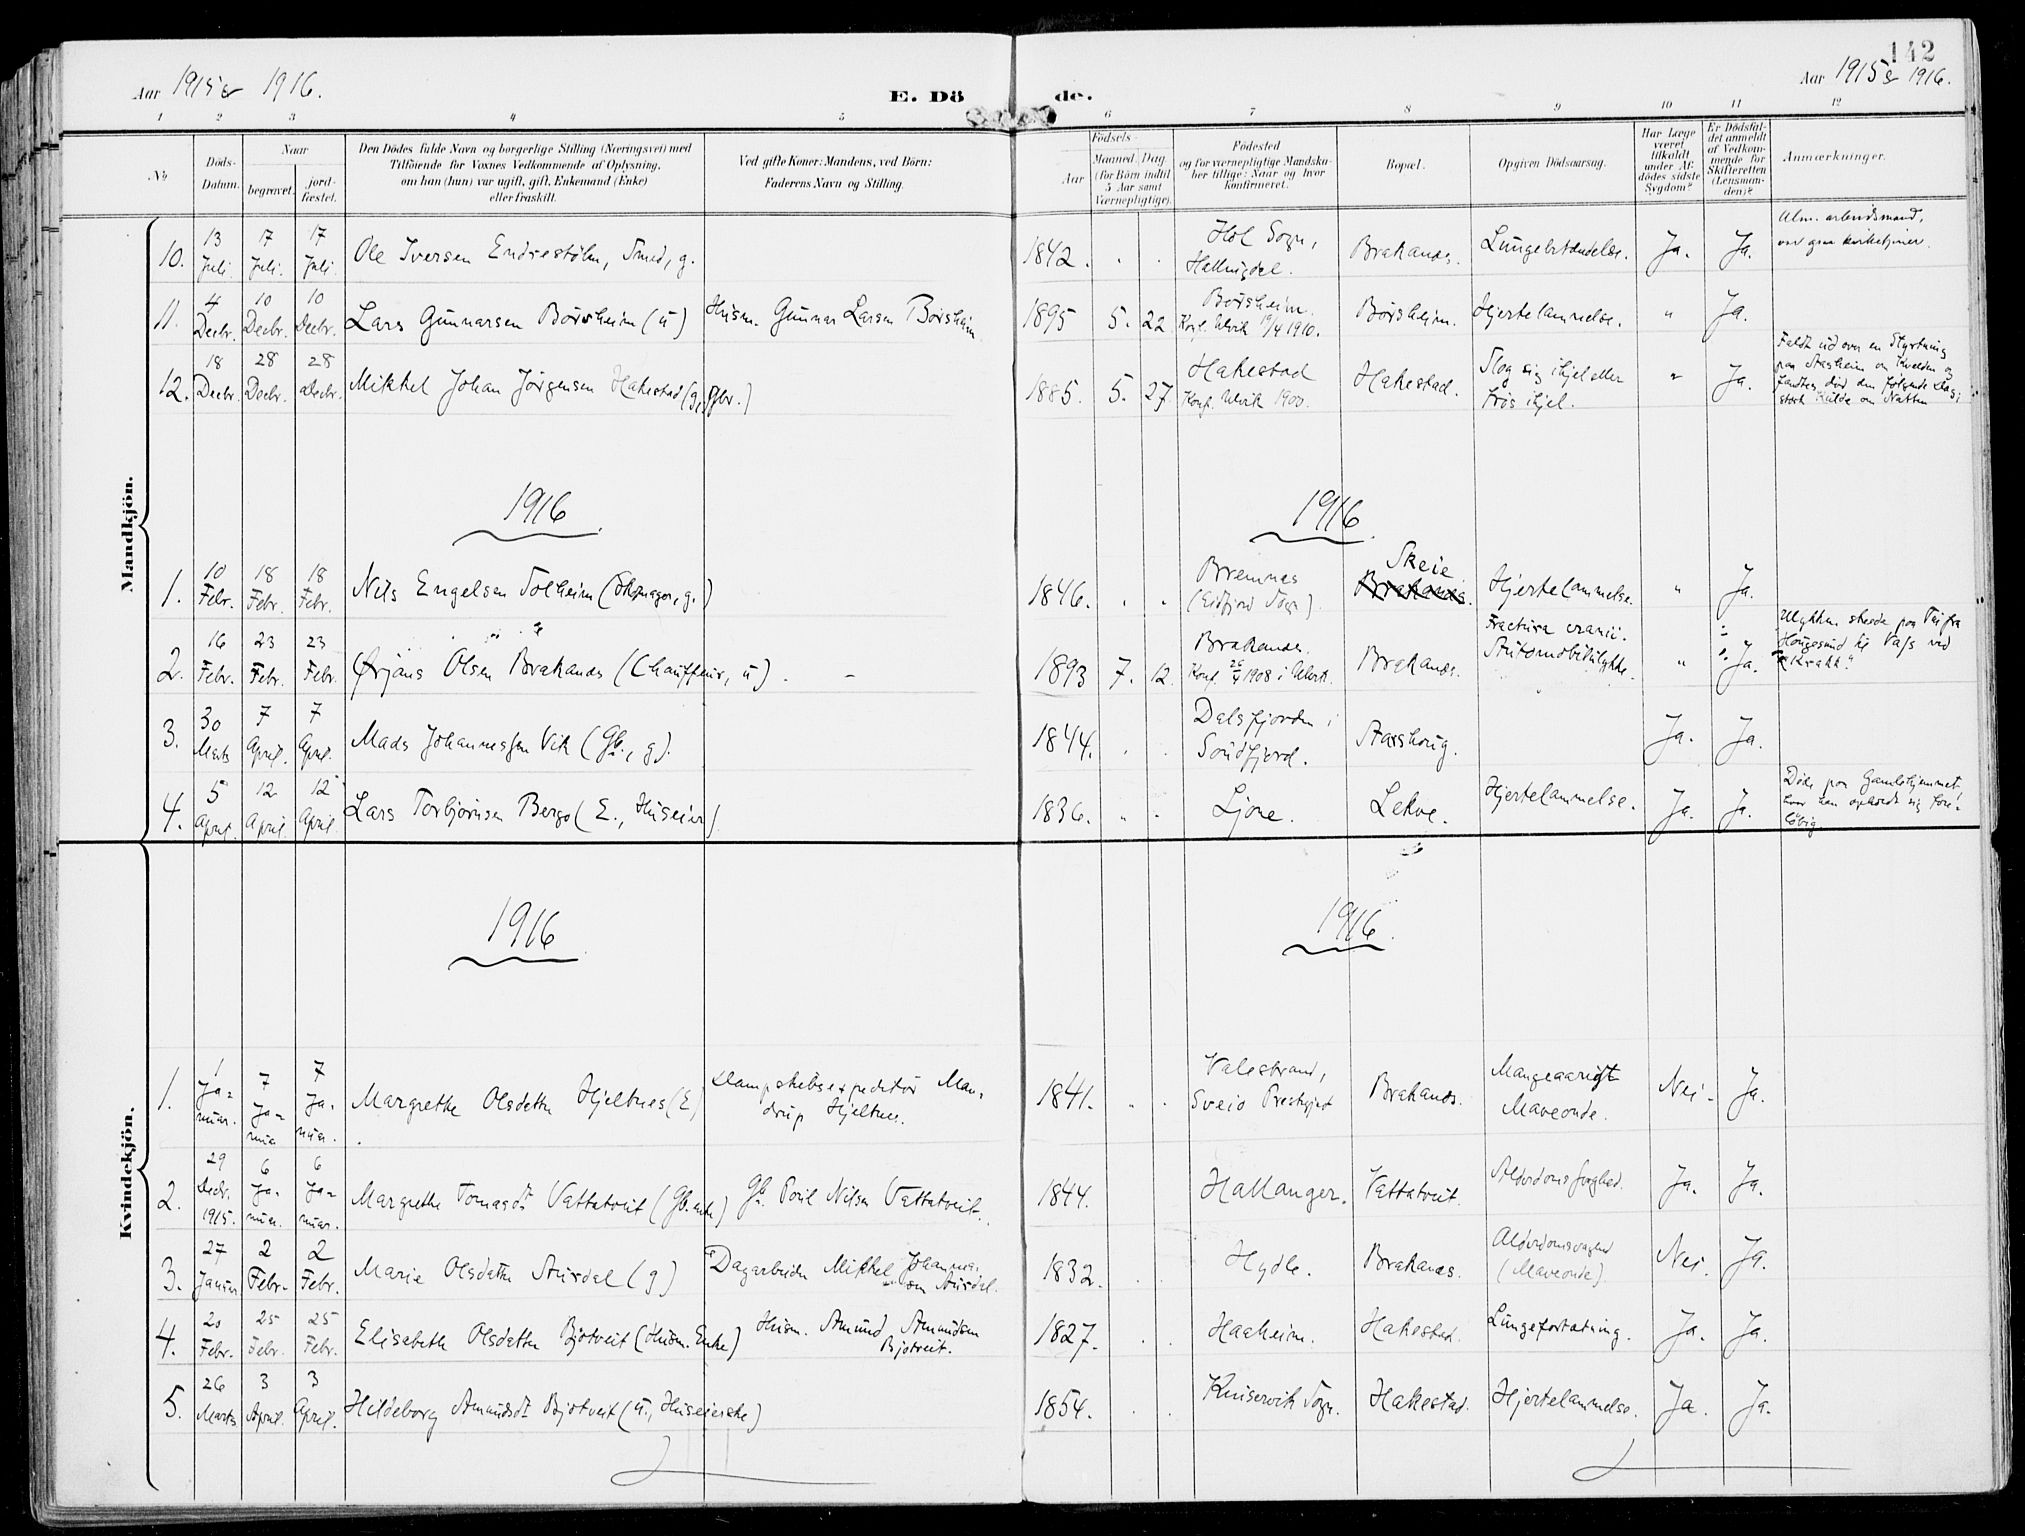 142
Aar 1915 & 1916.
E. Dö
de.
Aar 1915 & 1916.
1 2 3 4 5 6 7 8 9 10 11 12
No
Döds-Datum.
Naar
begravet.
jord-fæstet.
Den Dödes fulde Navn og borgerlige Stilling (Næringsvei) med
Tilföiende for Voxnes Vedkommende af Oplysning,
om han (hun) var ugift, gift, Enkemand (Enke)
eller fraskilt.
Ved gifte Koner: Mandens, ved Börn:
Faderens Navn og Stilling.
Födsels-
Aar
Maaned. Dag
(for Börn indtil
5 Aar samt
Værnepligtige).
Födested
og for værnepligtige Mandska-
ber tillige: Naar og hvor
konfirmeret.
Bopæl.
Opgiven Dödsaarsag.
Har Læge
været
tilkaldt
under Af-
dödes sidste
Sygdom?
Er Dödsfal-
det anmeldt
af Vedkom-
mende for
Skifteretten
(Lensman-
den)?
Anmærkninger.
Mandkjön.
10. 13 Juli. 17 Juli. 17 Juli. Ole Iversen Endrestölen, Smed, g. 1842. Hol Sogn, Hallingdal. Brakanes. Lungebetændelse. Ja. Ja. Alm. arbeidsmand, var graa kirketjener.
11. 4 Decbr. 10 Decbr. 10 Decbr. Lars Gunnarsen Børsheim (u) Husm. Gunnar Larsen Børsheim 1895 5. 22. Børsheim. Konf. Ulvik 10/4 1910. Børsheim. Hjertelammelse. " Ja.
12. 18 Decbr. 28 Decbr. 28 Decbr. Mikkel Johan Jørgensen Hakestad (g, Gbr.) 1885. 5. 27 Hakestad Konf. Ulvik 1900. Hakestad. Slog sig ihjel eller frös ihjel. " Ja. Faldt ud over en Styrtning paa Aasheim om Kvelden og fandtes död den følgende Dag; stærk Kulde om Natten
1916 1916.
1. 10 Febr. 18 Febr. 18 Febr. Nils Engelsen Solheim (Skomager, g.) 1846. Bremnes (Eidfjord Sogn). Skeie Brakanes. Hjertelammelse. " Ja.
2. 16 Febr. 23 Febr. 23 Febr. Ørjans Olsen Brakanes (Chauffeur, u). 1893 7. 12. Brakanes. Konf. 26/4 1908 i Ulvik. Brakanes. Fractura cranii. Automobilulykke. " Ja. Ulykken skeede paa Vei fra Haugesund til Vass ved "Krakk"
3. 30 Marts 7 April. 7 April. Mads Johannessen Vik (Gb., g). 1844. Dalsfjorden i Söndfjord. Ja. Ja.
4. 5 April. 12 April. 12 April. Lars Torbjørnsen Bergo (E., Huseier) 1836. Ljone. Lekve. Hjertelammelse. Ja. Ja. Døde paa Gamlehjemmet, hvor han opholdt sig foreløbig.
Kvindekjön.
1916 1916.
1. 1 Januar. 7 Januar 7 Januar. Margrethe Olsdatter Hjeltnes (E) Dampskibsexpeditör Mandrup Hjeltnes. 1841. Valestrand, Sveio Prestgjeld Brakanes. Mangeaarigt Maveonde. Nei. Ja.
2. 29 Decbr. 1915. 6 Januar. 6 Januar. Margrethe Tomasdt Vattatveit (Gb. enke) Gb. Poul Nilsen Vattatveit. 1844. Hallanger. Vattatveit. Alderdomssvaghed. Ja. Ja.
3. 27 Januar 2 Febr. 2 Febr. Marie Olsdatter Aurdal (g) Dagarbeider Mikkel Johannessen Aurdal. 1832. Hydle. Brakanes. Alderdomssvaghed (Maveonde). Nei. Ja.
4. 20 Febr. 25 Febr. 25 Febr. Elisabeth Olsdatter Bjotveit (Husm. Enke) Husm. Amund Amundsen Bjotveit. 1827. Haaheim. Hakestad. Lungefortætning. Ja. Ja.
5. 26 Marts 3 April. 3 April. Hildeborg Amundsdt Bjotveit (u., Huseierske) 1854. Kinservik Sogn. Hakestad. Hjertelammelse. Ja. Ja.